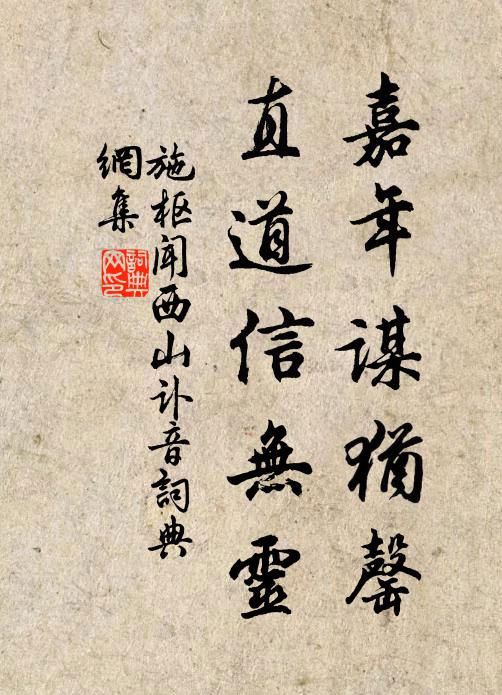 嘉年謀猶罄
直道信無靈
施枢闻西山讣音詞典
網集
詞典
网印